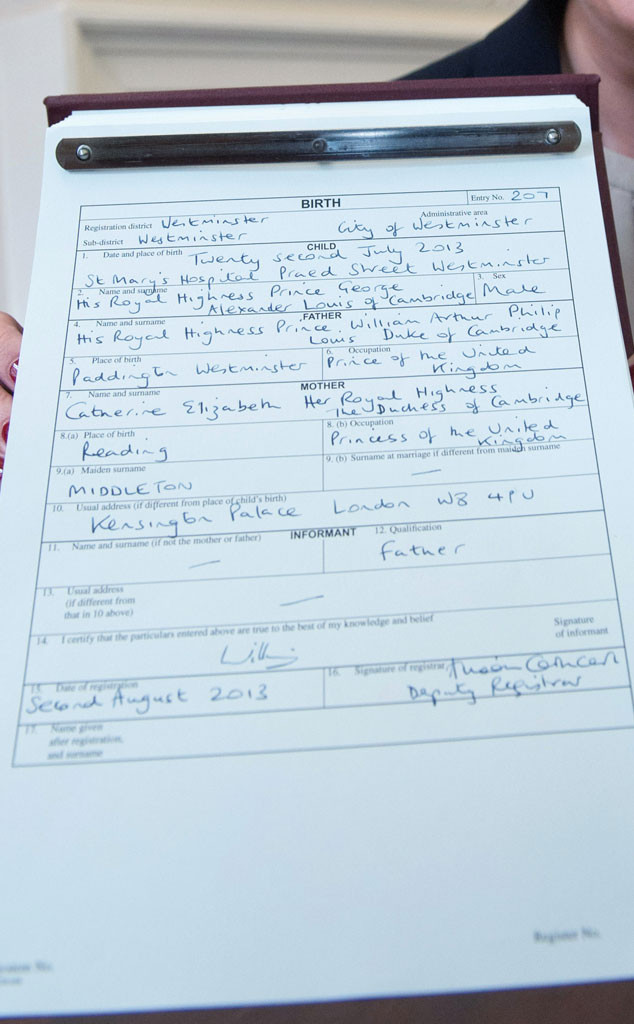 BIRTH Entry No. 207
Registration district Westminster Administrative area
Sub-district Westminster City of Westminster
CHILD
1. Date and place of birth Twenty second July 2013
St Mary's Hospital Praed Street Westminster
2. Name and surname His Royal Highness Prince George
Alexander Louis of Cambridge
3. Sex
Male
FATHER
4. Name and surname His Royal Highness Prince William Arthur Philip
Louis Duke of Cambridge
5. Place of birth
Paddington Westminster
6. Occupation
Prince of the United
Kingdom
MOTHER
7. Name and surname
Catherine Elizabeth Her Royal Highness
The Duchess of Cambridge
8.(a) Place of birth
Reading
8. (b) Occupation
Princess of the United
Kingdom
9.(a) Maiden surname
MIDDLETON
9. (b) Surname at marriage if different from maiden surname
—
10. Usual address (if different from place of child's birth)
Kensington Palace London W8 4PU
INFORMANT
11. Name and surname (if not the mother or father)
—
12. Qualification
Father
13. Usual address
(if different from
that in 10 above)
—
14. I certify that the particulars entered above are true to the best of my knowledge and belief
Signature
of informant
15. Date of registration
Second August 2013
16. Signature of registrar
Deputy Registrar
17. Name given
after registration,
and surname
Register No.